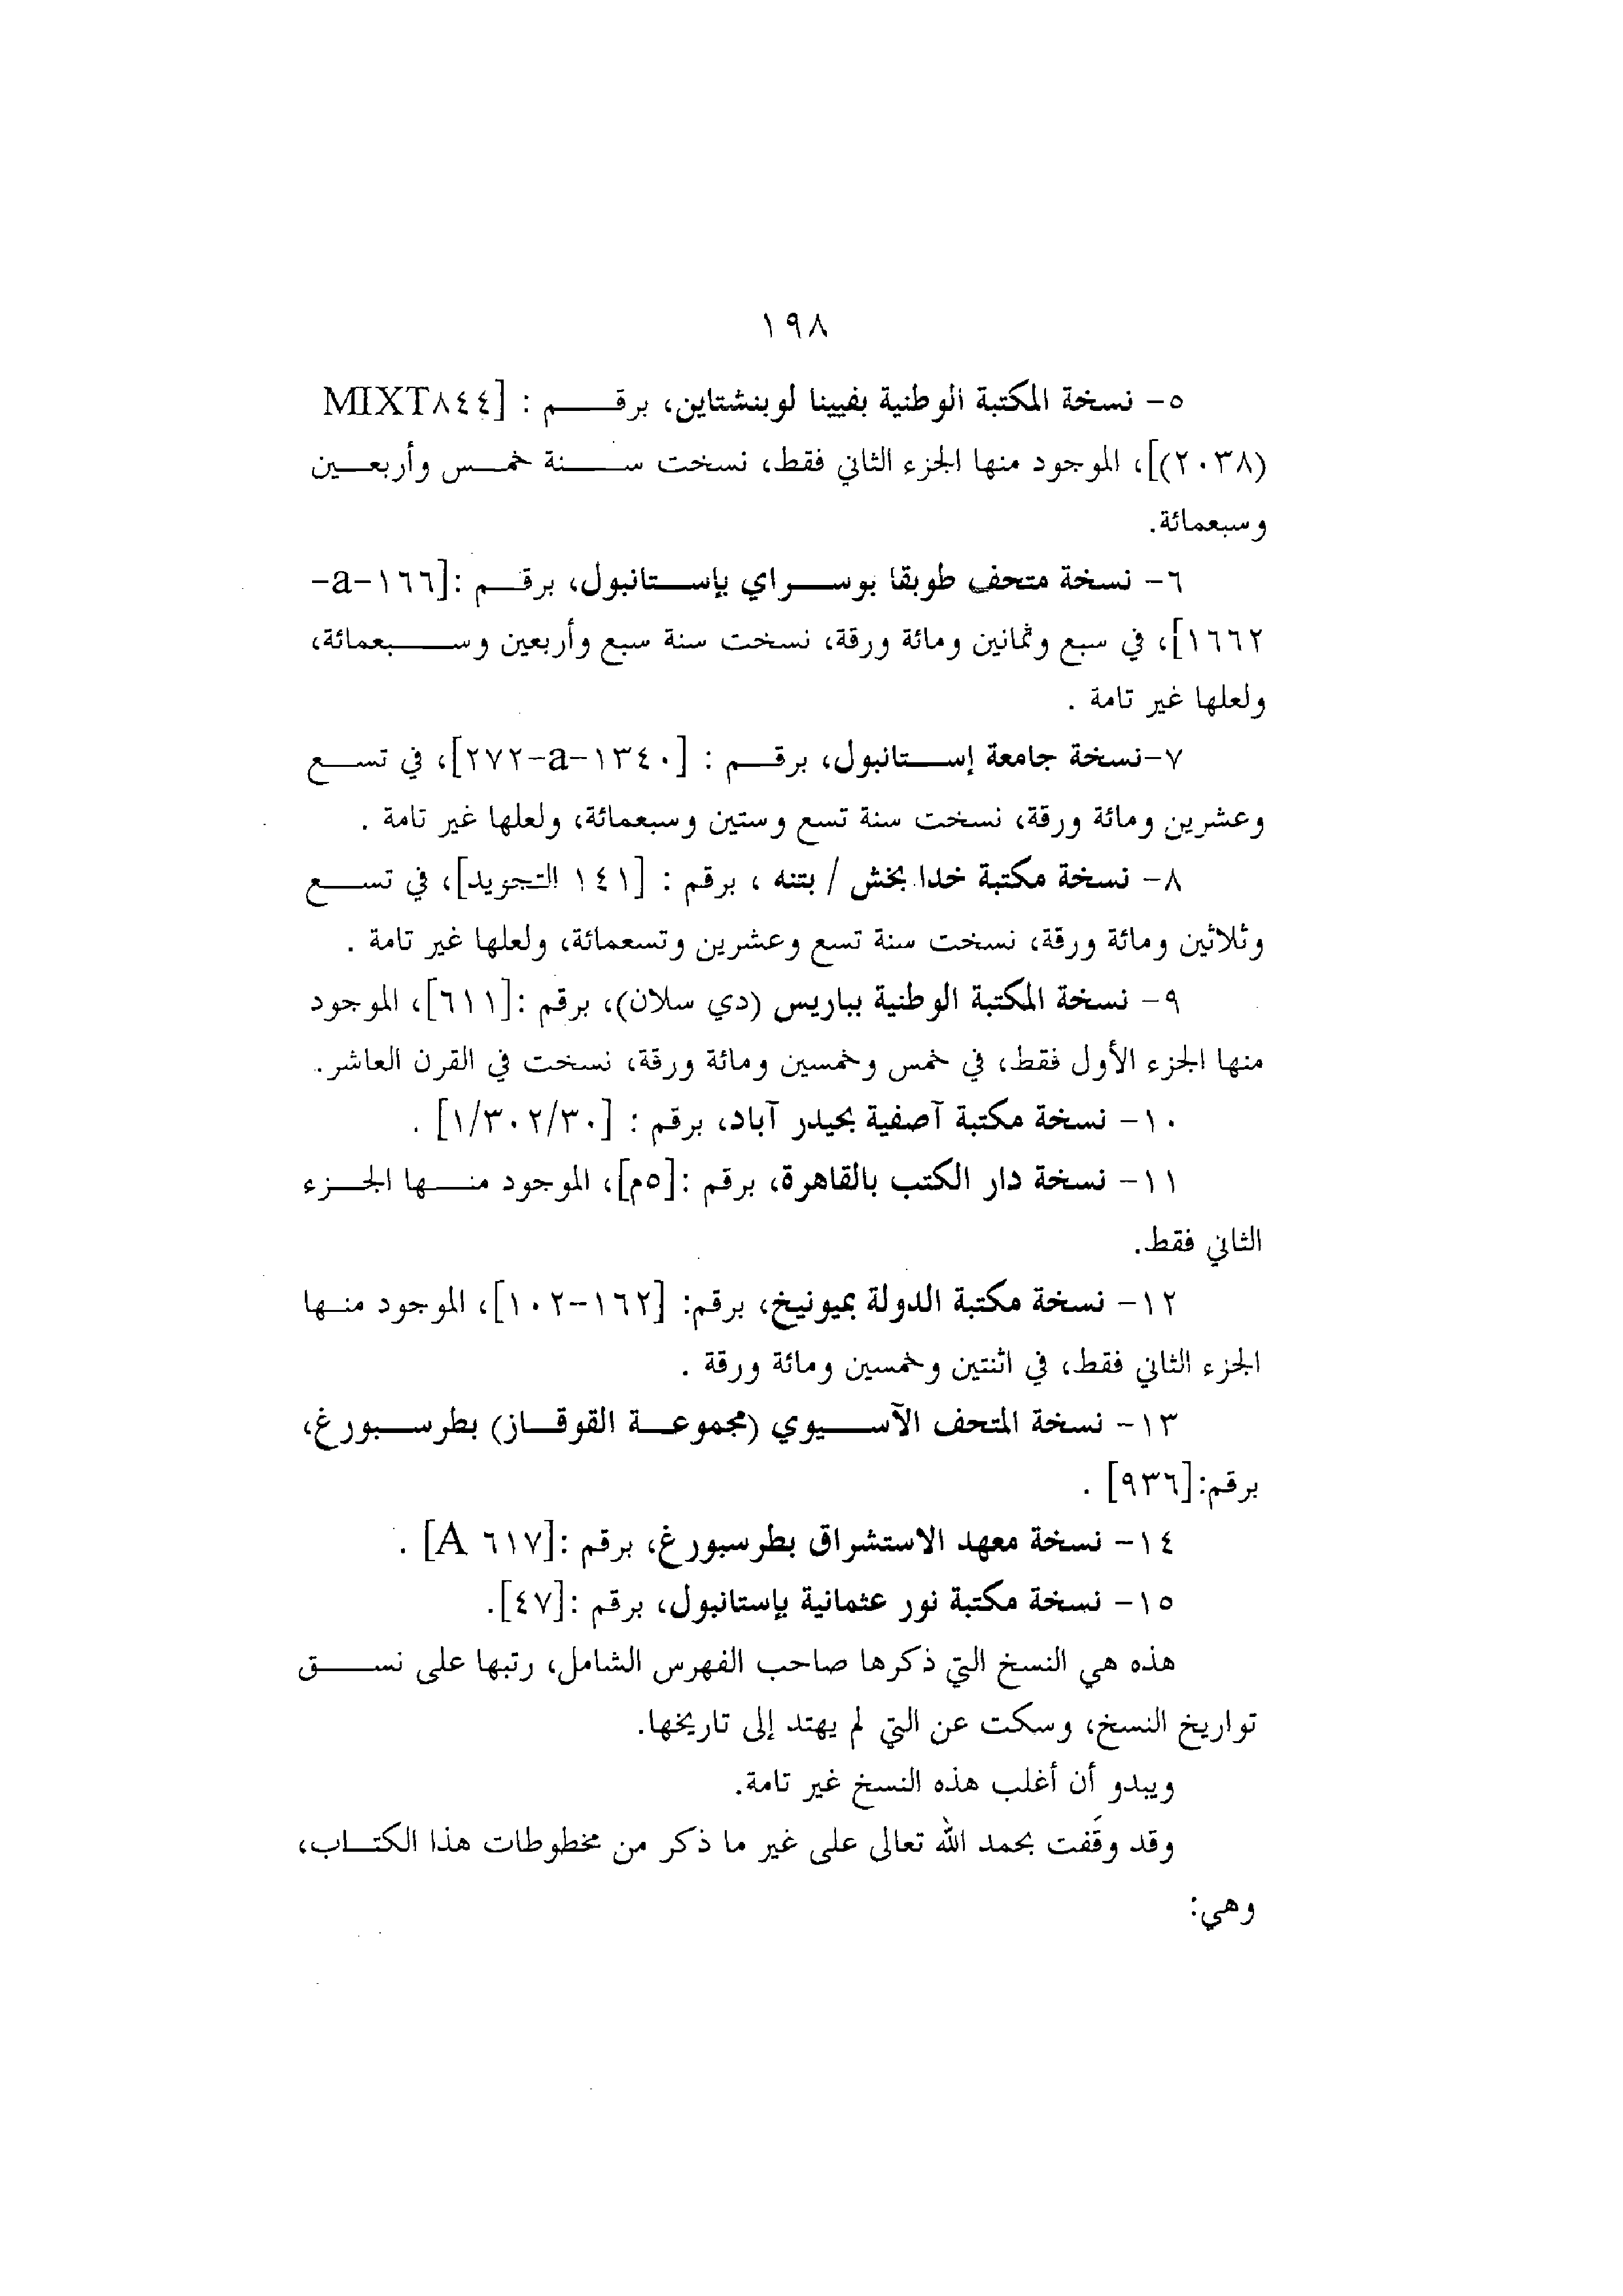 ١٩٨
٥- نسخة المكتبة الوطنية بفيينا لوبنشتاين، برقم : [MIXT٨٤٤
(٢٠٣٨)]، الموجود منها الجزء الثاني فقط، نسخت سنة خمس وأربعين
وسبعمائة.
٦- نسخة متحف طوبقا بوسراي بإستانبول، برقم :[١٦٦-a-
١٦٦٢]، في سبع وثمانين ومائة ورقة، نسخت سنة سبع وأربعين وسبعمائة،
ولعلها غير تامة .
٧-نسخة جامعة إستانبول، برقم : [١٣٤٠-a-٢٧٢]، في تسع
وعشرين ومائة ورقة، نسخت سنة تسع وستين وسبعمائة، ولعلها غير تامة .
٨- نسخة مكتبة خدا بخش / بتنه ، برقم : [١٤١ التجويد]، في تسع
وثلاثين ومائة ورقة، نسخت سنة تسع وعشرين وتسعمائة، ولعلها غير تامة .
٩- نسخة المكتبة الوطنية بباريس (دي سلان)، برقم :[٦١١]، الموجود
منها الجزء الأول فقط، في خمس وخمسين ومائة ورقة، نسخت في القرن العاشر.
١٠- نسخة مكتبة آصفية بحيدر آباد، برقم : [١/٣٠٢/٣٠] .
١١- نسخة دار الكتب بالقاهرة، برقم :[٥م]، الموجود منها الجزء
الثاني فقط.
١٢- نسخة مكتبة الدولة بميونيخ، برقم: [١٦٢-١٠٢]، الموجود منها
الجزء الثاني فقط، في اثنتين وخمسين ومائة ورقة .
١٣- نسخة المتحف الآسيوي (مجموعة القوقاز) بطرسبورغ،
برقم:[٩٣٦] .
١٤- نسخة معهد الاستشراق بطرسبورغ، برقم :[A ٦١٧] .
١٥- نسخة مكتبة نور عثمانية بإستانبول، برقم :[٤٧].
هذه هي النسخ التي ذكرها صاحب الفهرس الشامل، رتبها على نسق
تواريخ النسخ، وسكت عن التي لم يهتد إلى تاريخها.
ويبدو أن أغلب هذه النسخ غير تامة.
وقد وقَفت بحمد الله تعالى على غير ما ذكر من مخطوطات هذا الكتاب،
وهي: